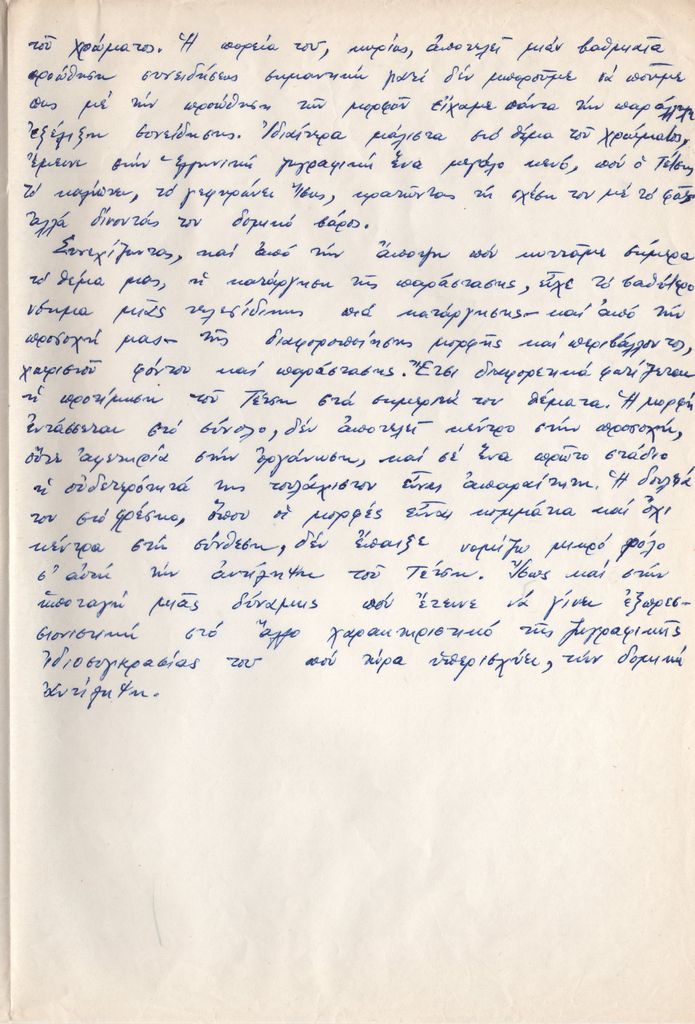 τοῦ χρώματος. Ἡ πορεία του, κυρίως, ἀποτελεῖ μιάν βαθμιαῖα
προώθηση συνειδήσεως σημαντική γιατί δέν μποροῦμε νά ποῦμε
πως μέ τήν προώθηση τῶν μορφῶν εἴχαμε πάντα τήν παράλληλη
ἐξέλιξη συνείδησης. Ἰδιαίτερα μάλιστα στό θέμα τοῦ χρώματος,
ἔμεινε στήν Ἑλληνική ζωγραφική ἕνα μεγάλο κενό, πού ὁ Τέτσης
τό καλύπτει, τό γεφυρώνει ἴσως, κρατώντας τή σχέση του μέ τό φῶς
ἀλλά δίνοντάς του δομικό βάρος.
Συνεχίζοντας, καί ἀπό τήν ἄποψη πού κυττᾶμε σήμερα
τό θέμα μας, ἡ κατάργηση τῆς παράστασης, εἶχε τό βαθύτερο
νόημα μιᾶς τελεσίδικης πιά κατάργησης – καί ἀπό τήν
προσοχή μας – τῆς διαφοροποίησης μορφῆς καί περιβάλλοντος,
χωριστοῦ φόντου καί παράστασης. Ἔτσι διαφορετικά φωτίζεται
ἡ προτίμηση τοῦ Τέτση στά σημερινά του θέματα. Ἡ μορφή
ἐντάσσεται στό σύνολο, δέν ἀποτελεῖ κέντρο στήν προσοχή,
οὔτε ἀφετηρία στήν ὀργάνωση, καί σέ ἕνα πρῶτο στάδιο
ἡ οὐδετερότητά της τουλάχιστον εἶναι ἀπαραίτητη. Ἡ δουλειά
του στό φρέσκο, ὅπου οἱ μορφές εἶναι κομμάτια καί ὄχι
κέντρα στή σύνθεση, δέν ἔπαιξε νομίζω μικρό ρόλο
σ' αὐτή τήν ἀντίληψη τοῦ Τέτση. Ἴσως καί στήν
ὑποταγή μιᾶς δύναμης πού ἔτεινε νά γίνει ἐξπρεσ-
σιονιστική στό ἄλλο χαρακτηριστικό τῆς ζωγραφικῆς
ἰδιοσυγκρασίας του πού τώρα ὑπερισχύει, τήν δομική
ἀντίληψη.